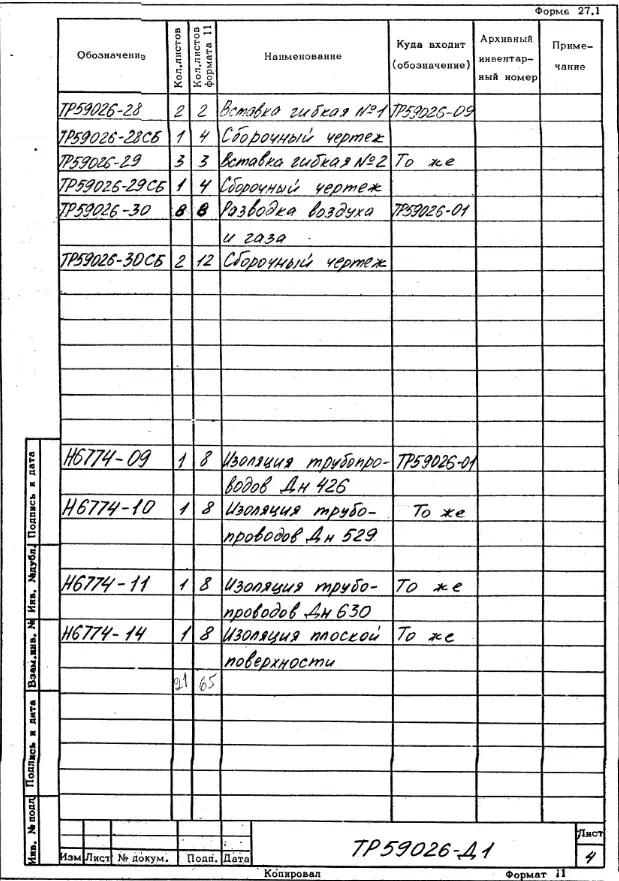 Форма 27.1
Обозначение Кол.листов Кол.листов формата 11 Наименование Куда входит (обозначение) Архивный инвентарный номер Примечание
ТР59026-28 2 2 Вставка гибкая №1 ТР59026-09
ТР59026-28СБ 1 4 Сборочный чертеж
ТР59026-29 3 3 Вставка гибкая №2 То же
ТР59026-29СБ 1 4 Сборочный чертеж
ТР59026-30 8 8 Разводка воздуха ТР59026-01
и газа
ТР59026-30СБ 2 12 Сборочный чертеж
Н6774-09 1 8 Изоляция трубопро- ТР59026-01
водов Дн 426
Н6774-10 1 8 Изоляция трубо- То же
проводов Дн 529
Н6774-11 1 8 Изоляция трубо- То же
проводов Дн 630
Н6774-14 1 8 Изоляция плоской То же
поверхности
21 65
Инв. № подл. Подпись и дата Взам.инв. № Инв. № дубл. Подпись и дата
ТР59026-Д1
Лист
4
Изм Лист № докум. Подп. Дата
Копировал Формат 11